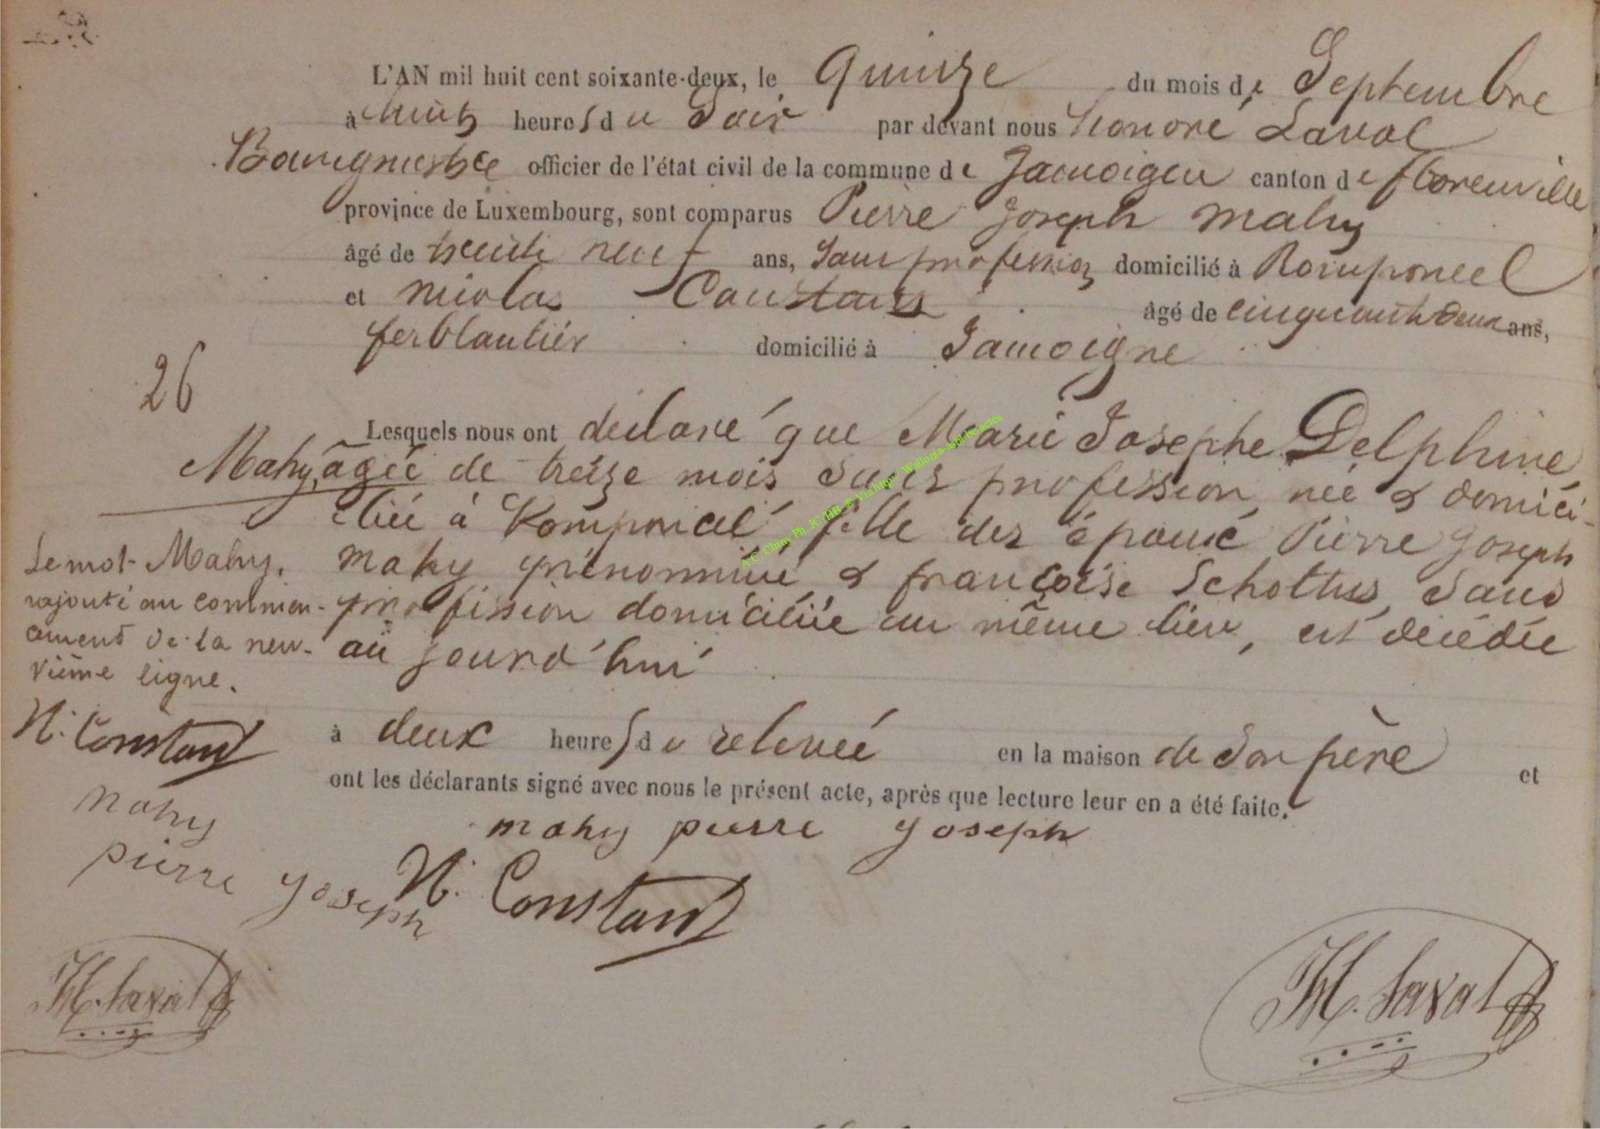 L'AN mil huit cent soixante-deux, le quinze du mois de Septembre
à huit heures du Soir par devant nous Honoré Laval
Bourgmestre officier de l'état civil de la commune de Jamoigne canton de florenville
province de Luxembourg, sont comparus Pierre Joseph Mahy
âgé de trente neuf ans, Sans profession domicilié à Romponcel
et nicolas Constant âgé de cinquante deux ans,
ferblantier domicilié à Jamoigne
26
Lesquels nous ont déclaré que Marie Josephe Delphine
Mahy, âgée de treize mois Sans profession, née & domici-
liée à Romponcel, fille des époux Pierre Joseph
mahy prénommé, & françoise Schottus, Sans
profession domiciliée au même lieu, est décédée
aujourd'hui
Le mot Mahy,
rajouté au commen-
cement de la neu-
vième ligne.
N. Constant
mahy
pierre Joseph
H. Laval
à deux heures du relevée en la maison de Son père et
ont les déclarants signé avec nous le présent acte, après que lecture leur en a été faite.
mahy pierre Joseph
N. Constant
H. Laval